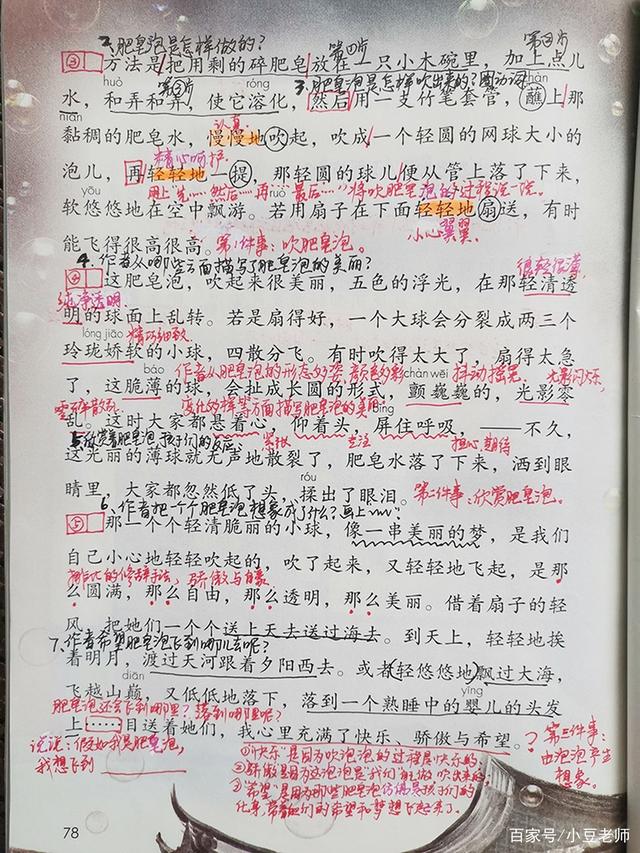 2、肥皂泡是怎样做的?
第①步
第③步
③ 方法是把用剩的碎肥皂放在一只小木碗里,加上点儿
huò
第②步
róng
3、肥皂泡是怎样吹出来的?圈动词
zhàn
水,和弄和弄,使它溶化,然后用一支竹笔套管,蘸上那
nián
认真
黏稠的肥皂水,慢慢地吹起,吹成一个轻圆的网球大小的
精心呵护
泡儿,再轻轻地一提,那轻圆的球儿便从管上落了下来,
yōu
用上“先……然后……再……最后……”将吹肥皂泡的过程说一说。
ruò
软悠悠地在空中飘游。若用扇子在下面轻轻地扇送,有时
小心翼翼
能飞得很高很高。
第1件事:吹肥皂泡。
4、作者从哪些方面描写了肥皂泡的美丽?
很轻很薄
④ 这肥皂泡,吹起来很美丽,五色的浮光,在那轻清透
纯净透明
明的球面上乱转。若是扇得好,一个大球会分裂成两三个
lóng jiāo
精巧细致
玲珑娇软的小球,四散分飞。有时吹得太大了,扇得太急
báo
作者从肥皂泡的形态的姿,颜色的彩
chàn wēi
抖动摇晃
光影闪烁,
了,这脆薄的球,会扯成长圆的形式,颤巍巍的,光影零
零碎散乱
变化的样等方面描写肥皂泡的美丽
bǐng
乱。这时大家都悬着心,仰着头,屏住呼吸,——不久,
5、欣赏着肥皂泡孩子们的反应
紧张
专注
担心、期待
这光丽的薄球就无声地散裂了,肥皂水落了下来,洒到眼
róu
睛里,大家都忽然低了头,揉出了眼泪。
第二件事:欣赏肥皂泡。
6、作者把一个个肥皂泡想象成了什么?画上
⑤ 那一个个轻清脆丽的小球,像一串美丽的梦,是我们
自己小心地轻轻吹起的,吹了起来,又轻轻地飞起,是那
排比的修辞手法,骄傲与自豪
么圆满,那么自由,那么透明,那么美丽。借着扇子的轻
风,把她们一个个送上天去送过海去。到天上,轻轻地挨
7、作者希望肥皂泡飞到哪儿去呢?
着明月,渡过天河跟着夕阳西去。或者轻悠悠地飘过大海,
diān
飞越山巅,又低低地落下,落到一个熟睡中的婴儿的头发
yīng
肥皂泡还会飞到哪里?落到哪里呢?
上……目送着她们,我心里充满了快乐、骄傲与希望。
说说:假如我是肥皂泡,
我想飞到
①“快乐”是因为吹泡泡的过程是快乐的。
②骄傲是因为这泡泡是“我们”能做、吹出来的,
③“希望”是因为那些肥皂泡仿佛是孩子们的
化身,带着他们的希望和梦想飞起来了。
第三件事:
由泡泡产生
想象。
78
百家号/小豆老师